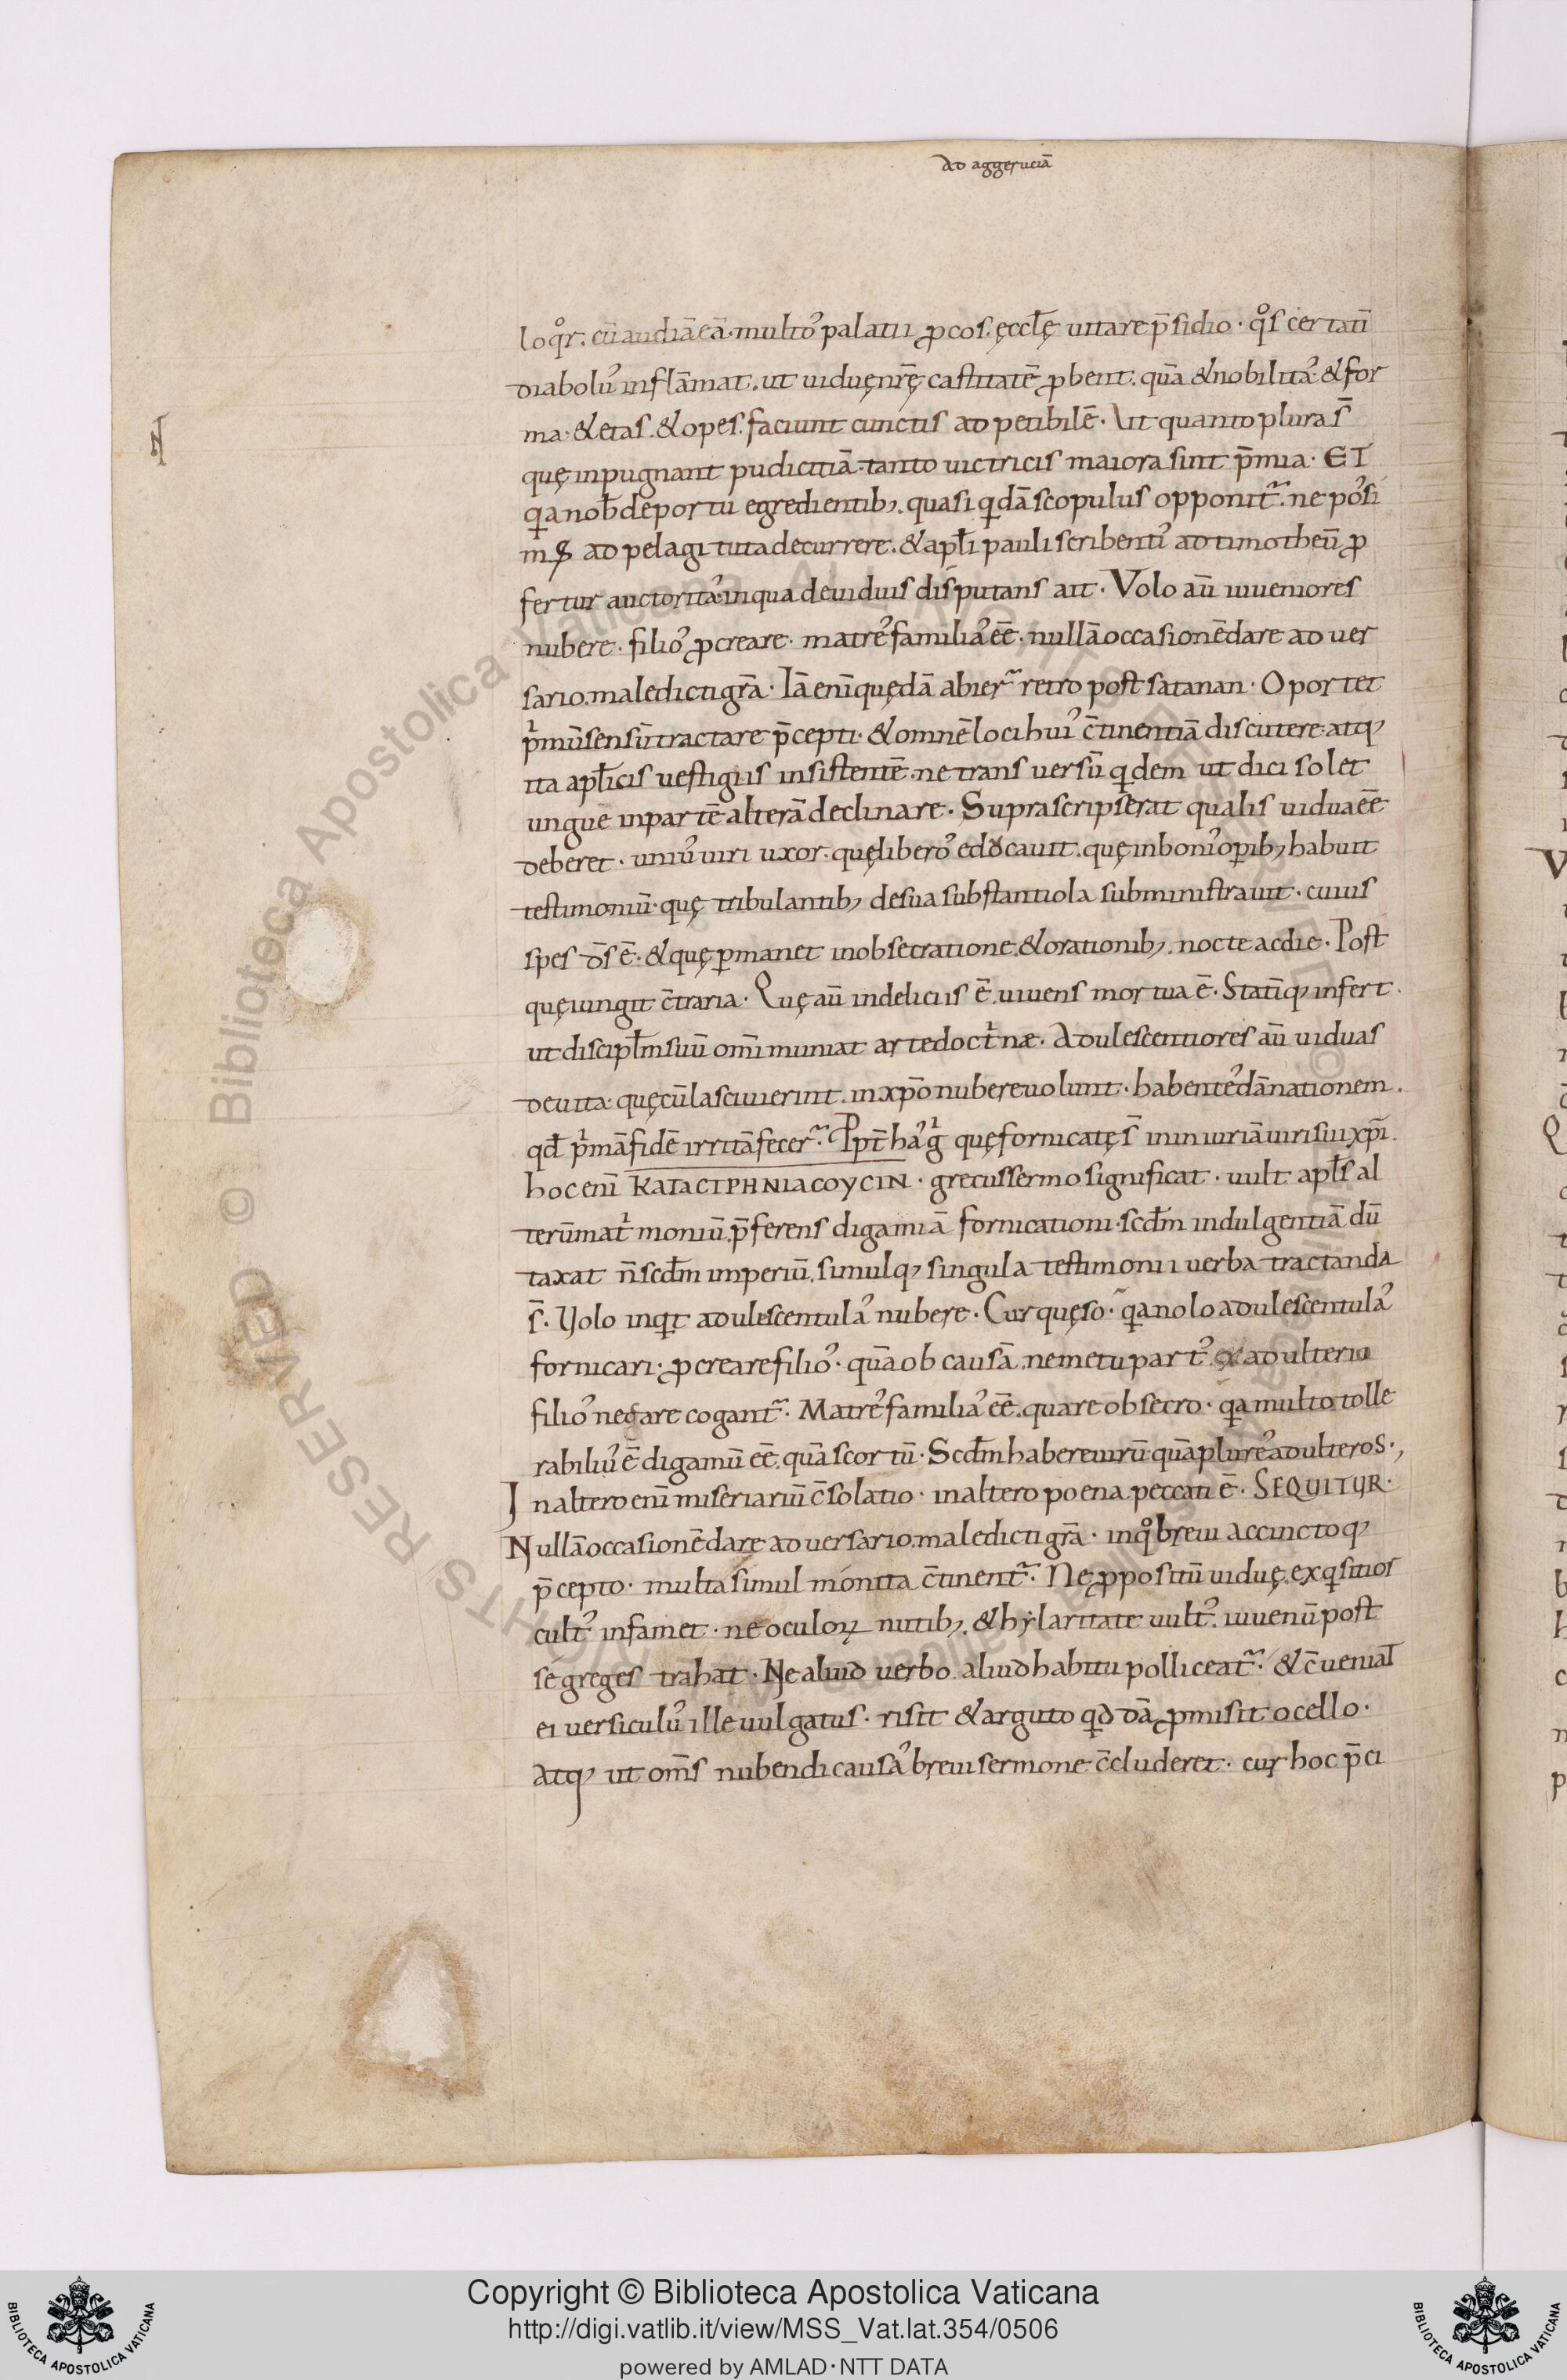 ad aggeruciā
loqͦr. cū audiā eā multoˀ palatii ꝓcos. ęccl̄ę uitare p̄sidio · qͦs certatī
diaboluˀ inflāmat. ut uiduę nr̄ę castitatē ꝓbent. quā & nobilitaˀ & for
ma. & etas. & opes. faciunt cunctis adpetibilē. Ut quanto plura s̄
quę inpugnant pudicitiā. tanto uictricis maiora sint p̄mia. ET
qͥa nob̄ de portu egredientibꝫ. quasi qͥdā scopulus opponit᷑. ne poˀsi
mꝰ ad pelagi tuta decurrere. & apl̄i pauli scribentiˀ ad timotheū ꝓ
fertur auctoritaˀ in qua de uiduis disputans ait. Volo aū iuueniores
nubere. filioˀ ꝓcreare. matreˀ familiaˀ eē. nullā occasionē dare aduer
sario. maledicti gr̄a. Iā eni quędā abier᷑ retro post satanan. Oportet
pͥmū sensū tractare p̄cepti. & omnē loci huiˀ c̄tinentiā discutere atqꝫ
ita apl̄icis uestigiis insistentē. ne transuersū qͥdem ut dici solet
unguē in partē alterā declinare. Supra scripserat qualis uidua eē
deberet. uniuˀ uiri uxor. quę liberoˀ educauit. quę in boniˀ oꝑibꝫ habuit
testimoniū. quę tribulantibꝫ de sua substantiola subministrauit. cuius
spes d̄s ē. & quę ꝑmanet in obsecratione. & orationibꝫ. nocte ac die. Post
quę iungit c̄traria. Quę aū in deliciis ē. uiuens mortua ē. Statīqꝫ infert.
ut discipl̄m suū om̄i muniat arte doctͥnæ. Adulescentiores aū uiduas
deuita. quę cū lasciuierint. in xp̄o nubere uolunt. habenteˀ dānationem.
qd̄ pͥmā fidē irritā fecer᷑. Ppt̄ haˀ gͥ quę fornicatę s̄ in iniuriā uiri sui xp̄i.
hoc eni KATACTPHNIACOYCIN. grecus sermo significat. uult apl̄s al
terū matͥmoniū. p̄ferens digamiā fornicationi. scd̄m indulgentiā dū
taxat n̄ scd̄m imperiū. simulqꝫ singula testimonii uerba tractanda
s̄. Volo inqͥt adulescentulaˀ nubere. Cur quęso. qͥa nolo adulescentulaˀ
fornicari. ꝓcreare filioˀ. quā ob causā. ne metu partˀ ex adulterio
filioˀ negare cogant᷑. Matreˀ familiaˀ eē. quare obsecro. qͥa multo tolle
rabiliuˀ ē digamū eē. quā scortū. Scd̄m habere uirū quā plureˀ adulteros.,
In altero eni miseriarū c̄solatio. in altero poena peccati ē. SEQUITUR.
Nullā occasionē dare aduersario. maledicti gr̄a. in qͦ breui accinctoqꝫ
p̄cepto. multa simul monita c̄tinent᷑. Ne ꝓpositū uiduę. exqͥsitior
cultˀ infamet. ne oculoꝝ nutibꝫ. & hylaritate uultˀ. iuuenū post
se greges trahat. Ne aliud uerbo aliud habitu polliceat᷑. & c̄ueniat
ei uersiculuˀ ille uulgatus. risit & arguto qͥddā ꝓmisit ocello.
Atqꝫ ut om̄s nubendi causaˀ breui sermone c̄cluderet. cur hoc p̄ci
© Biblioteca Apostolica Vaticana
ALL RIGHTS RESERVED
Copyright © Biblioteca Apostolica Vaticana
http://digi.vatlib.it/view/MSS_Vat.lat.354/0506
powered by AMLAD·NTT DATA
BIBLIOTECA APOSTOLICA VATICANA
BIBLIOTECA APOSTOLICA VATICANA